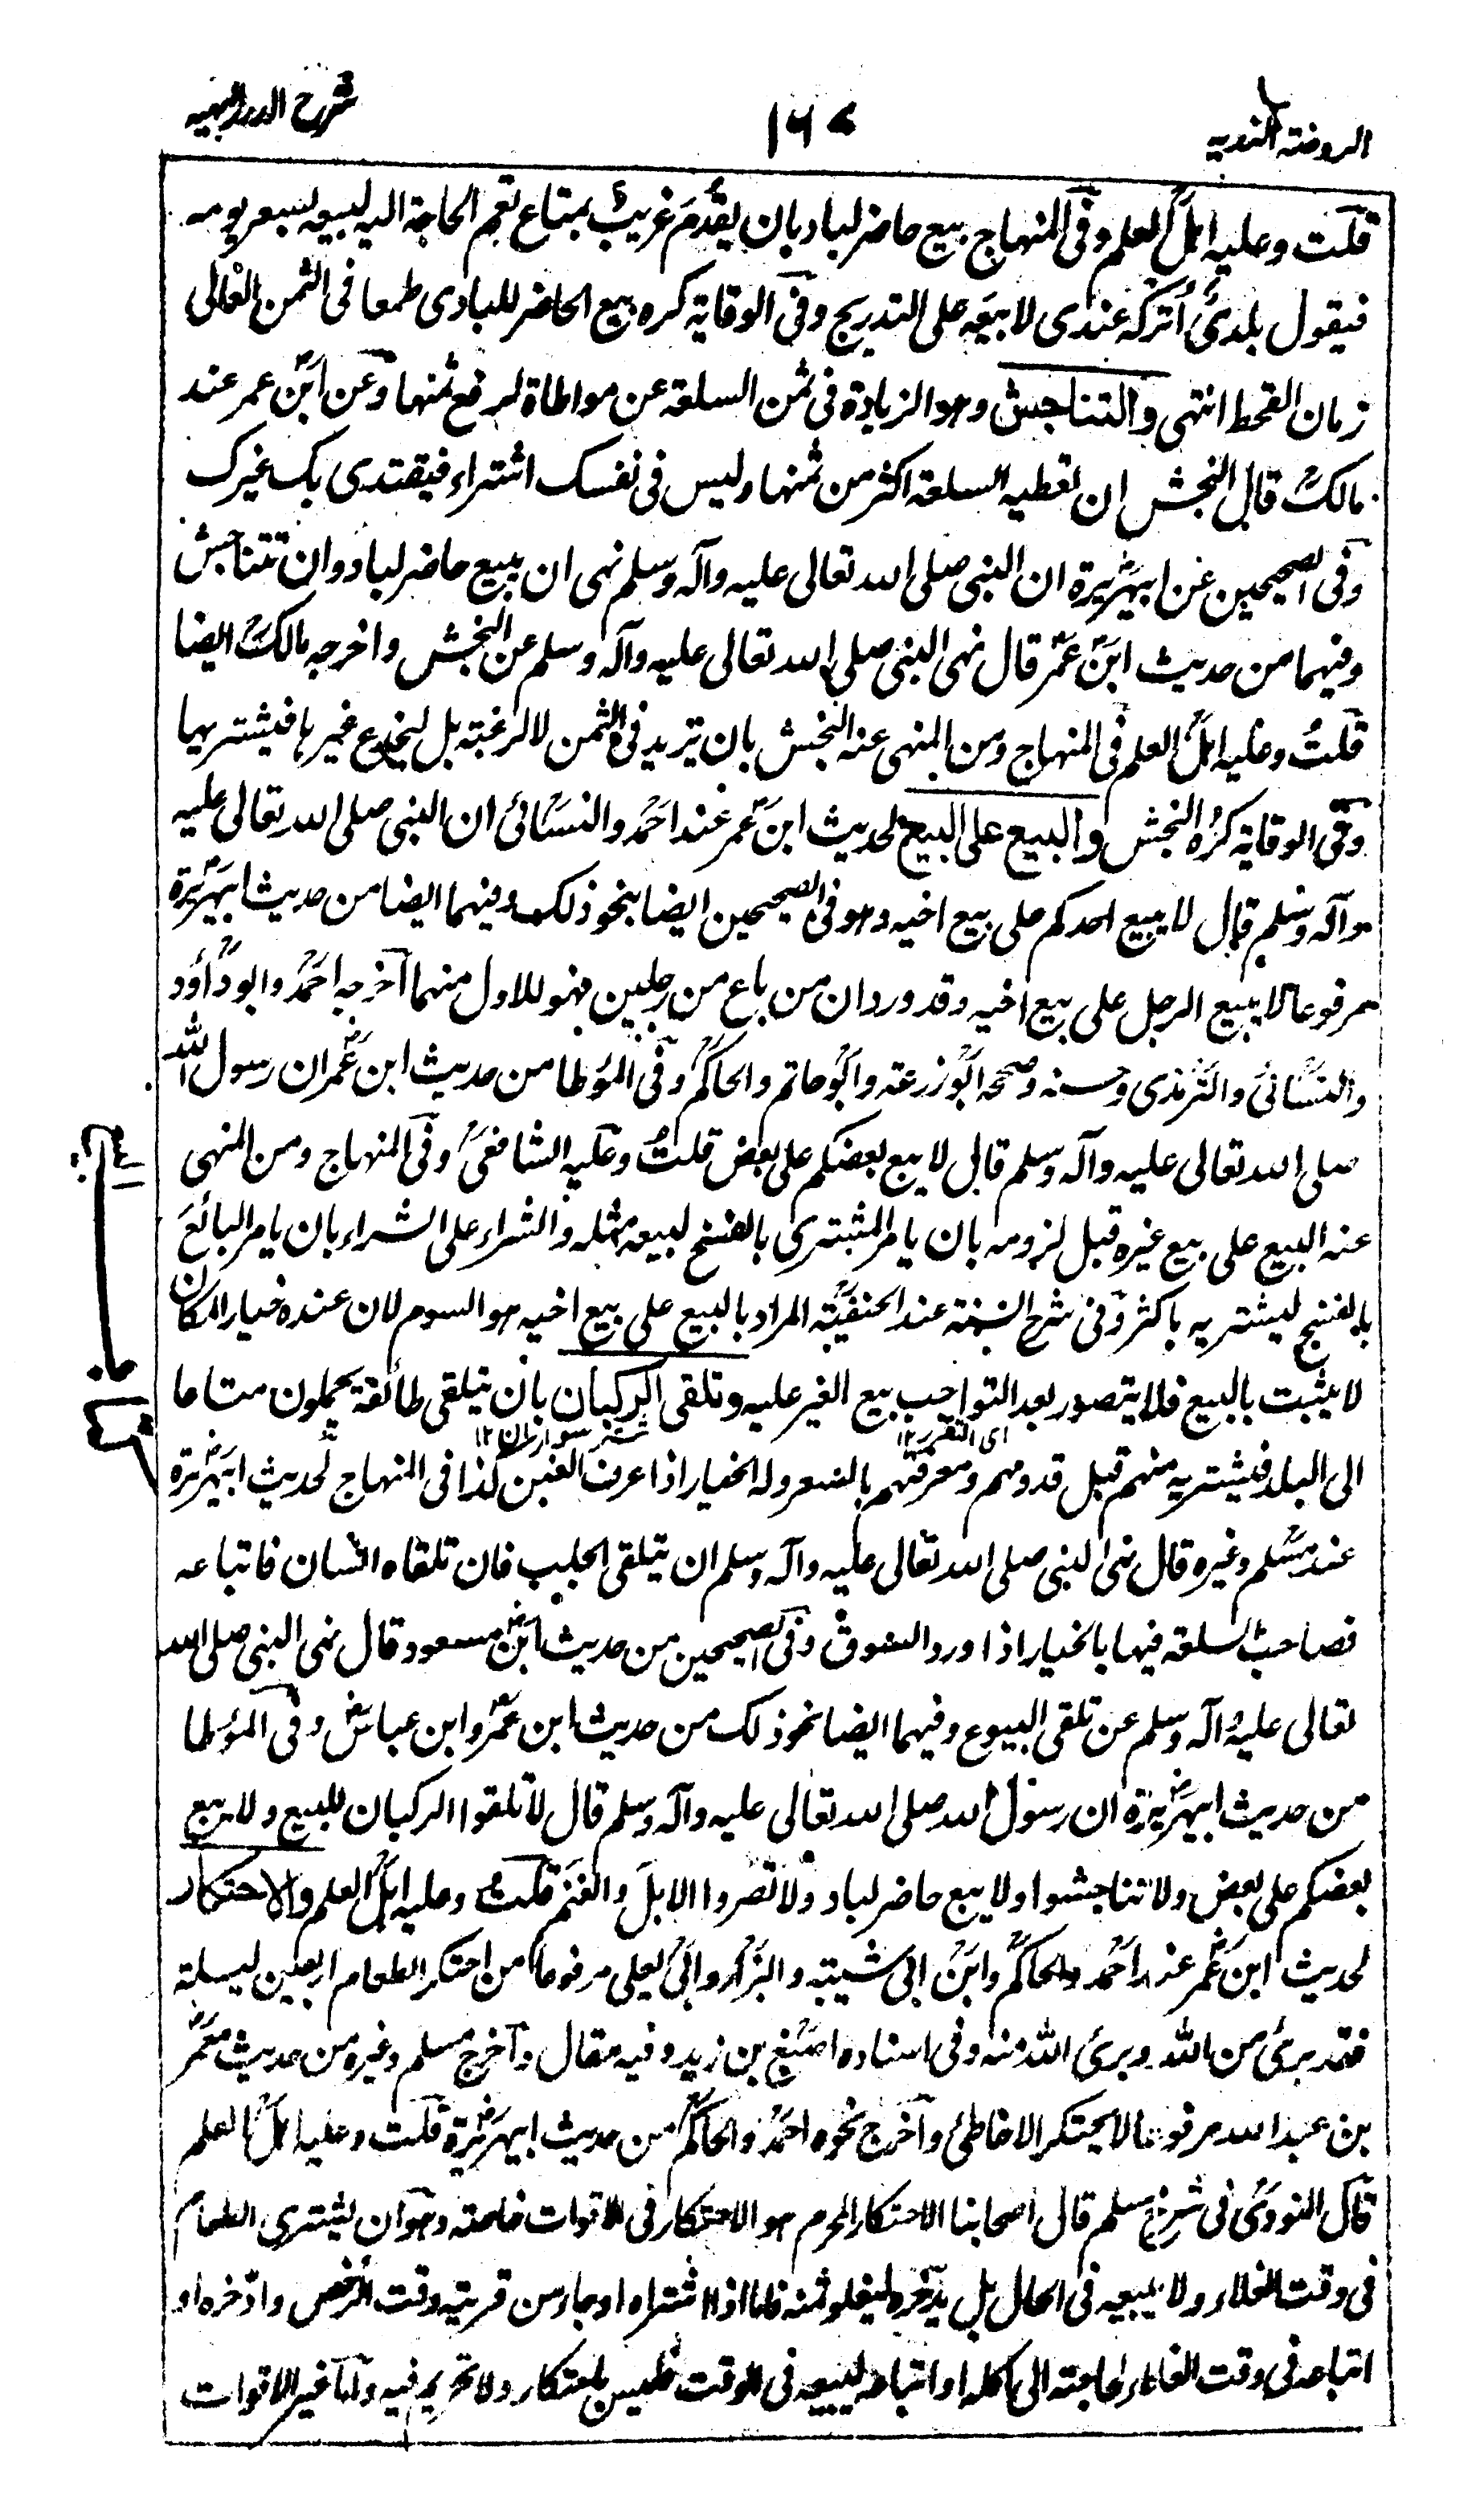 الروضة الندية
١٦٧
شرح الدرر البهية
قلت وعليه اهل العلم وفى المنهاج بيع حاضر لباد بان يقدم غريب بمتاع تعم الحاجة اليه ليبيعه بسعر يومه
فيقول بلدى اتركه عندى لابيعه على التدريج وفى الوقاية كره بيع الحاضر للبادى طمعا فى الثمن الغالى
زمان القحط انتهى والتناجش وهو الزيادة فى ثمن السلعة عن مواطاة لرفع ثمنها وعن ابن عمر عند
مالك قال النجش ان تعطيه السلعة اكثر من ثمنها وليس فى نفسك اشتراء فيقتدى بك غيرك
وفى الصحيحين عن ابيهريرة ان النبى صلى الله تعالى عليه وآله وسلم نهى ان يبيع حاضر لباد وان تتناجش
وفيهما من حديث ابن عمر قال نهى النبى صلى الله تعالى عليه وآله وسلم عن النجش واخرجه مالك ايضا
قلت وعليه اهل العلم فى المنهاج ومن المنهى عنه النجش بان تزيد فى الثمن لا لرغبة بل ليخدع غيرها فيشتريها
وفى الوقاية كره النجش والبيع على البيع لحديث ابن عمر عند احمد والنسائى ان النبى صلى الله تعالى عليه
وآله وسلم قال لا يبيع احدكم على بيع اخيه وهو فى الصحيحين ايضا بنحو ذلك وفيهما ايضا من حديث ابيهريرة
مرفوعا لا يبيع الرجل على بيع اخيه وقد ورد ان من باع من رجلين فهو للاول منهما اخرجه احمد وابو داؤد
والنسائى والترمذى وحسنه وصححه ابو زرعة وابو حاتم والحاكم وفى الموطا من حديث ابن عمر ان رسول الله
صلى الله تعالى عليه وآله وسلم قال لا يبع بعضكم على بعض قلت وعليه الشافعى وفى المنهاج ومن المنهى
عنه البيع على بيع غيره قبل لزومه بان يامر المشترى بالفسخ ليبيعه مثله والشراء على الشراء بان يامر البائع
بالفسخ ليشتريه باكثر وفى شرح السنة عند الحنفية المراد بالبيع على بيع اخيه هو السوم لان عنده خيار المكان
لا يثبت بالبيع فلا يتصور بعد التواجب بيع الغير عليه وتلقى الركبان بان يتلقى طائفة يحملون متاعا
اى التقرر ١٢
شتر سواران ١٢
الى البلد فيشتريه منهم قبل قدومهم ومعرفتهم بالسعر وله الخيار اذا عرف الغبن كذا فى المنهاج لحديث ابيهريرة
عند مسلم وغيره قال نهى النبى صلى الله تعالى عليه وآله وسلم ان يتلقى الجلب فان تلقاه انسان فابتاعه
فصاحب السلعة فيها بالخيار اذا ورد السوق وفى الصحيحين من حديث ابن مسعود قال نهى النبى صلى الله
تعالى عليه وآله وسلم عن تلقى البيوع وفيهما ايضا نحو ذلك من حديث ابن عمر وابن عباس وفى الموطا
من حديث ابيهريرة ان رسول الله صلى الله تعالى عليه وآله وسلم قال لا تلقوا الركبان للبيع ولا يبع
بعضكم على بعض ولا تناجشوا ولا يبع حاضر لباد ولا تصروا الابل والغنم قلت وعليه اهل العلم والاحتكار
لحديث ابن عمر عند احمد والحاكم وابن ابى شيبة والبزار وابى يعلى مرفوعا من احتكر الطعام اربعين ليلة
فقد برئ من الله وبرئ الله منه وفى اسناده اصبغ بن زيد وفيه مقال واخرج مسلم وغيره من حديث معمر
بن عبد الله مرفوعا لا يحتكر الا خاطئ واخرج نحوه احمد والحاكم من حديث ابيهريرة قلت وعليه اهل العلم
قال النووى فى شرح مسلم قال اصحابنا الاحتكار المحرم هو الاحتكار فى الاقوات خاصة وهو ان يشترى الطعام
فى وقت الغلاء ولا يبيعه فى الحال بل يدخره ليغلو ثمنه فاما اذا اشتراه او جاء من قريته وقت الرخص وادخره او
ابتاعه فى وقت الغلاء لحاجته الى اكله او ابتاعه ليبيعه فى الوقت فليس باحتكار ولا تحريم فيه واما غير الاقوات